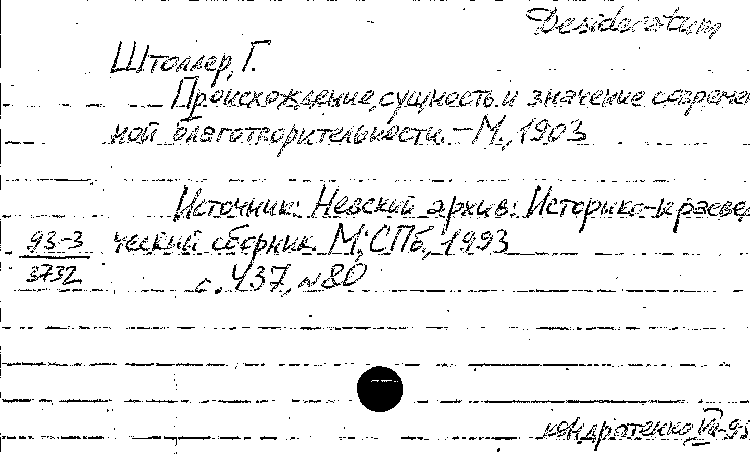 Desideratum
Штоллер, Г.
Происхождение, сущность и значение современ
ной благотворительности. – М., 1903
Источник: Невский архив: Историко-краевед
93-3 ческий сборник. М.; СПб., 1993
3732 с. 437, №80
Кондратенко VIII-95